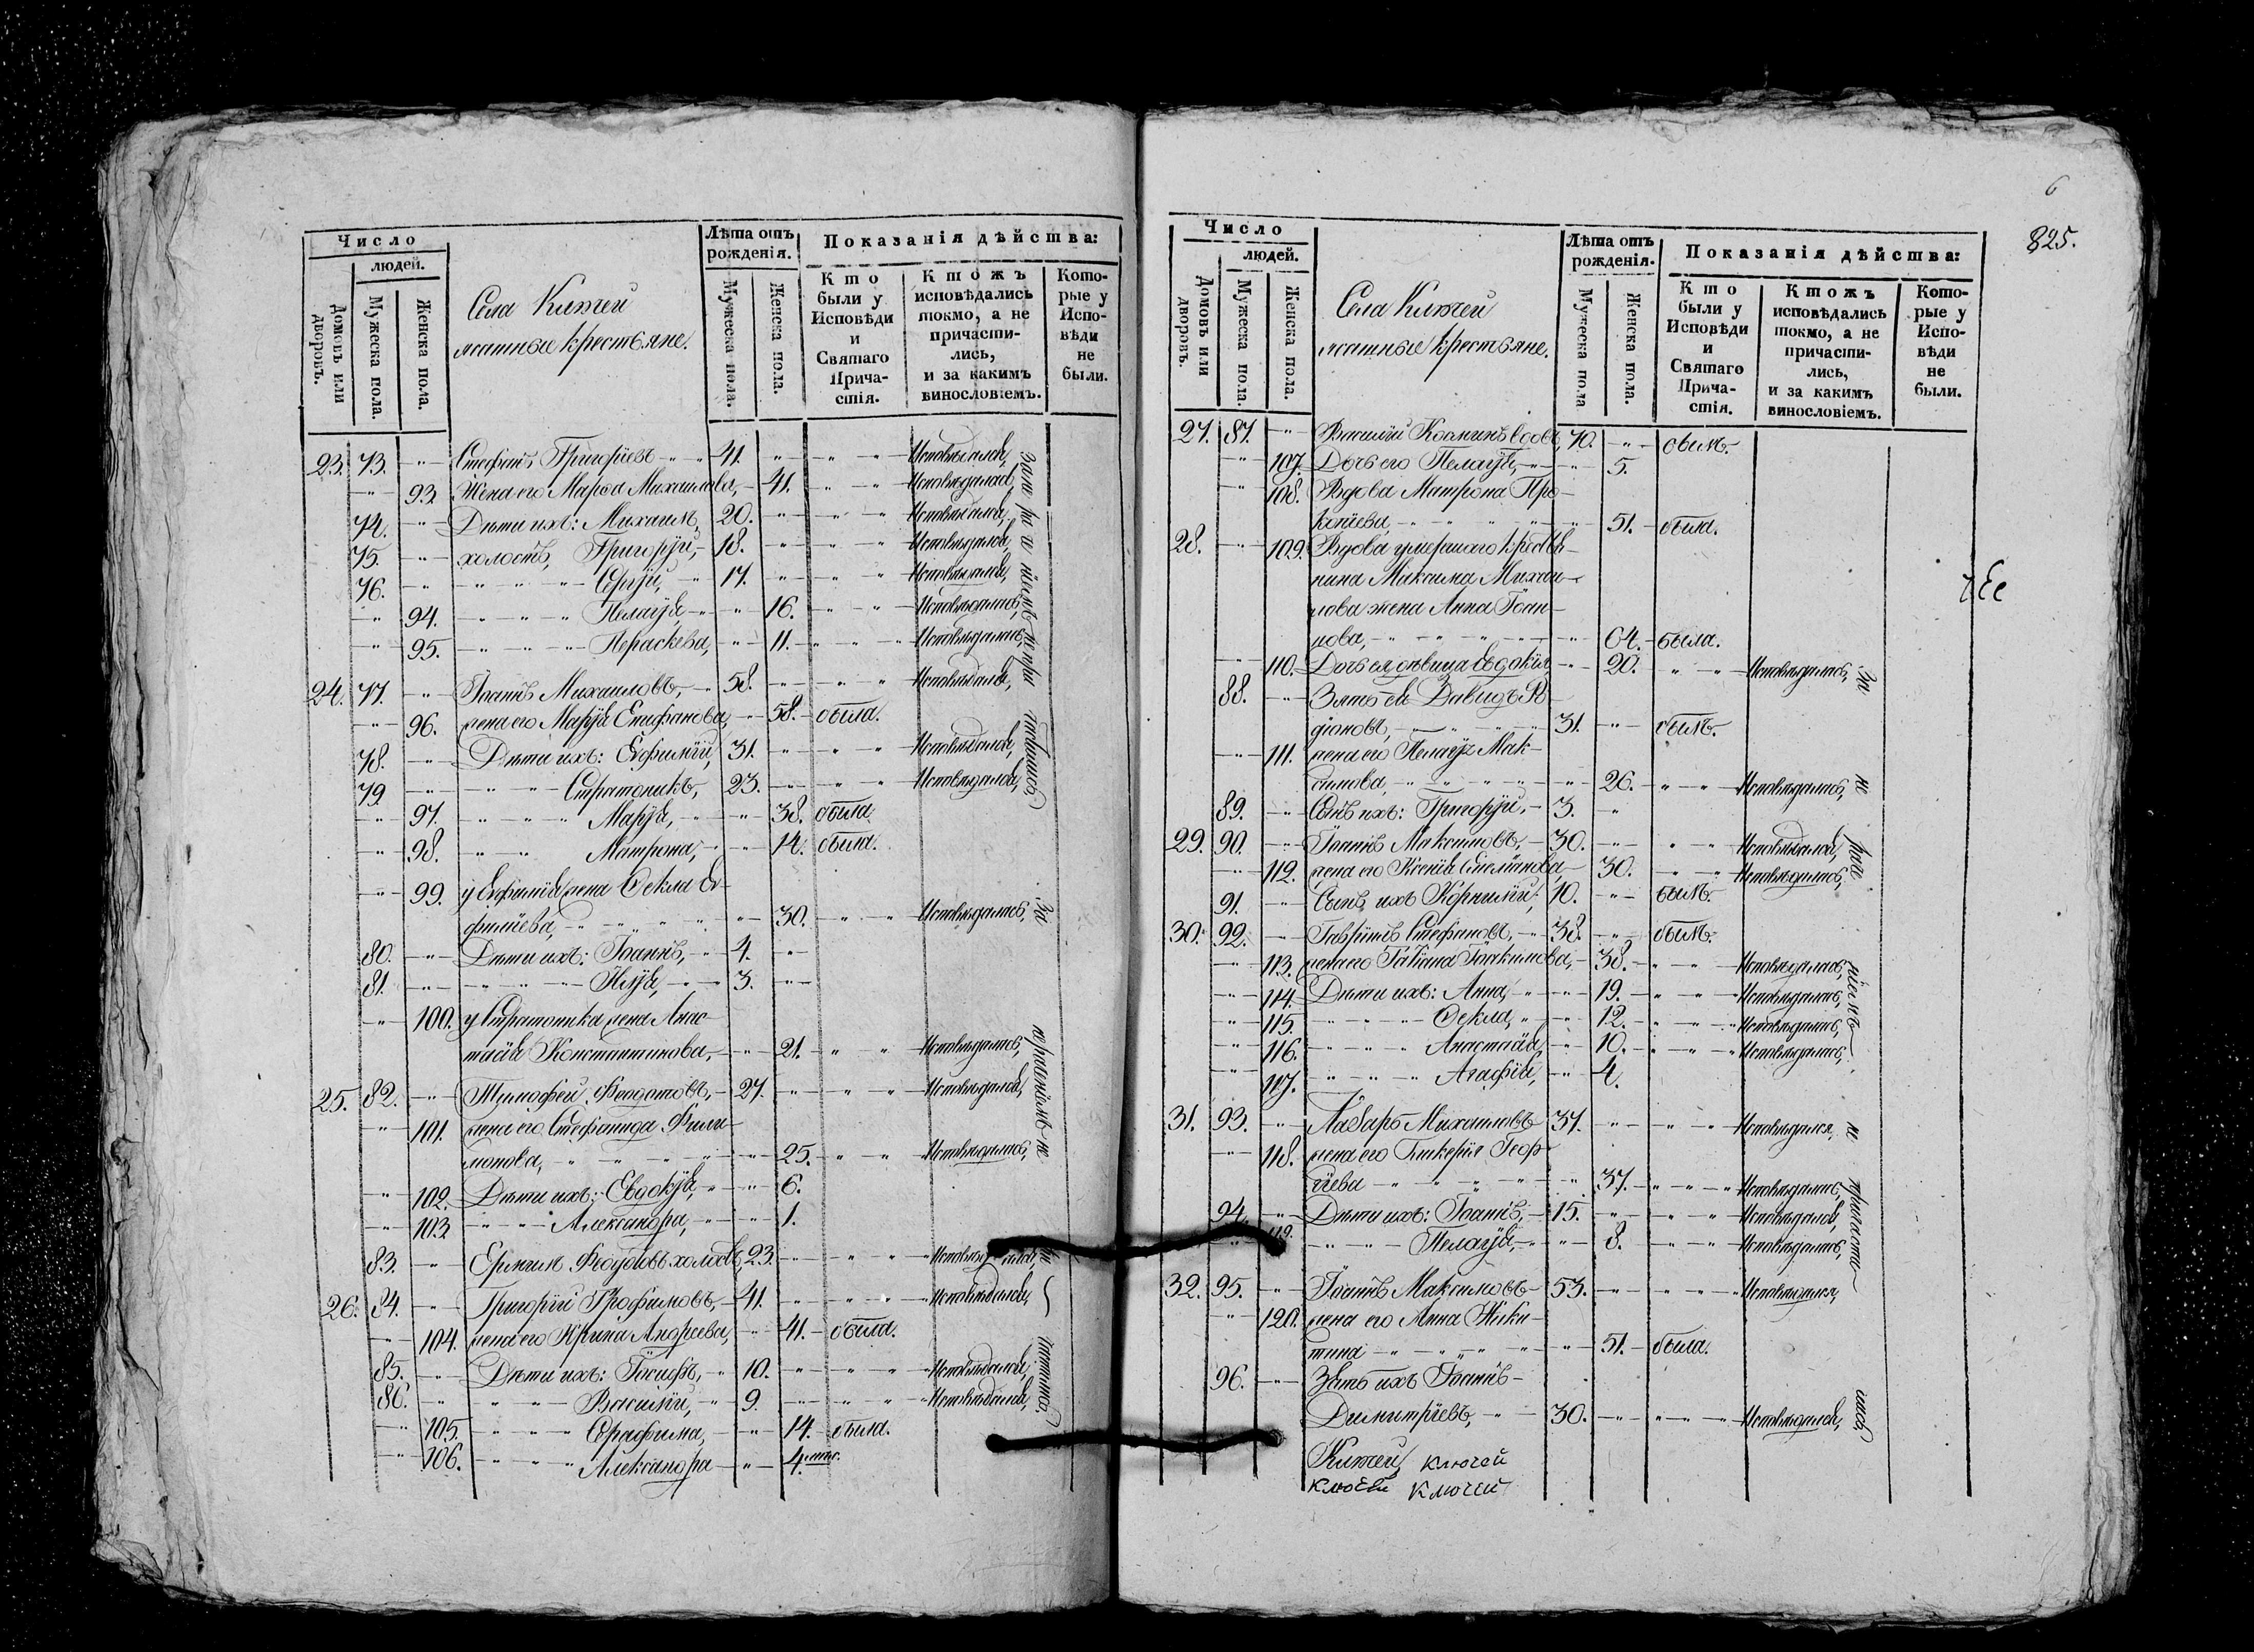 Число
людей.
Домовъ или дворовъ.
Мужеска пола.
Женска пола.
Села Ключей
ясашные крестьяне.
Лѣта отъ рожденія.
Мужеска пола.
Женска пола.
Показанія дѣйства:
Кто были у Исповѣди и Святаго Прича-стія.
Ктожъ исповѣдались токмо, а не причасти-лись, и за какимъ винословіемъ.
Кото-рые у Испо-вѣди не были.
23. 73. Стефанъ Григорьевъ 41. Исповѣдался,
93. Жена его Марѳа Михаилова, 41. Исповѣдалась,
74. Дѣти ихъ: Михаилъ, 20. Исповѣдался,
75. холостъ, Григорій, 18. Исповѣдался,
76. Сергій, 17. Исповѣдался,
94. Пелагія, 16. Исповѣдалась,
95. Параскева, 11. Исповѣдалась,
24. 77. Іоаннъ Михаиловъ, 58. Исповѣдался,
96. жена его Марія Епифанова, 58. была.
78. Дѣти ихъ: Евфимій, 31. Исповѣдался,
79. Стратоникъ, 23. Исповѣдался,
97. Марія, 38. была.
98. Матрона, 14. была.
99. у Евфимія жена Ѳекла Ев-
фимієва, 30. Исповѣдалась,
80. Дѣти ихъ: Іоаннъ, 4.
81. Илія, 3.
100. у Стратоника жена Анас-
тасія Константинова, 21. Исповѣдалась,
25. 82. Тимофей Феодотовъ, 27. Исповѣдался,
101. жена его Стефанида Фили-
монова, 25. Исповѣдалась,
102. Дѣти ихъ: Евдокія, 6.
103. Александра, 1.
83. холостъ, 23. Исповѣдался,
26. 84. Григорій Трофимовъ, 41. Исповѣдался,
104. жена его Ирина Андреева, 41. была.
85. Дѣти ихъ: Іосифъ, 10. Исповѣдался,
86. Василій, 9. Исповѣдался,
105. Серафима, 14. была.
106. Александра 4. мѣс.
6
825.
Число
людей.
Домовъ или дворовъ.
Мужеска пола.
Женска пола.
Села Ключей
ясашные крестьяне.
Лѣта отъ рожденія.
Мужеска пола
Женска пола.
Показанія дѣйства:
Кто были у Исповѣди и Святаго Прича-стія.
Ктожъ исповѣдались токмо, а не причасти-лись, и за какимъ винословіемъ.
Кото-рые у Испо-вѣди не были.
27. 87. Василій Козминъ вдовъ, 70. былъ.
107. Дочь его Пелагія, 5.
108. Вдова Матрона Про-
копіева, 51. была.
28. 109. Вдова умершаго крестья-
нина Максима Михаи-
лова жена Анна Іоан-
нова, 64. была.
110. Дочь ея дѣвица Евдокія 20. Исповѣдалась,
88. Зять ея Давидъ Ро-
діоновъ, 31. былъ.
111. жена его Пелагія Мак-
симова, 26. Исповѣдалась,
89. Сынъ ихъ: Григорій, 3.
29. 90. Іоаннъ Максимовъ, 30. Исповѣдался,
112. жена его Ксенія 30. Исповѣдалась,
91. Сынъ ихъ Корнилій, 10. былъ.
30. 92. Гавріилъ Стефановъ, 38. былъ.
113. жена его Татіана Іоакимова, 38. Исповѣдалась,
114. Дѣти ихъ: Анна, 19. Исповѣдалась,
115. Ѳекла, 12. Исповѣдалась,
116. Анастасія, 10. Исповѣдалась,
117. Агафія, 4.
31. 93. Лазарь Михаиловъ 37. Исповѣдался,
118. жена его Гликерія Геор-
гіева 37. Исповѣдалась,
94. Дѣти ихъ: Іоаннъ, 15. Исповѣдался,
119. Пелагія, 8. Исповѣдалась,
32. 95. Іоаннъ Максимовъ 53. Исповѣдался,
120. жена его Анна Ники-
тина 51. была.
96. Зять ихъ Іоаннъ
Димитріевъ, 30. Исповѣдался,
Ключей ключей
ключей ключей